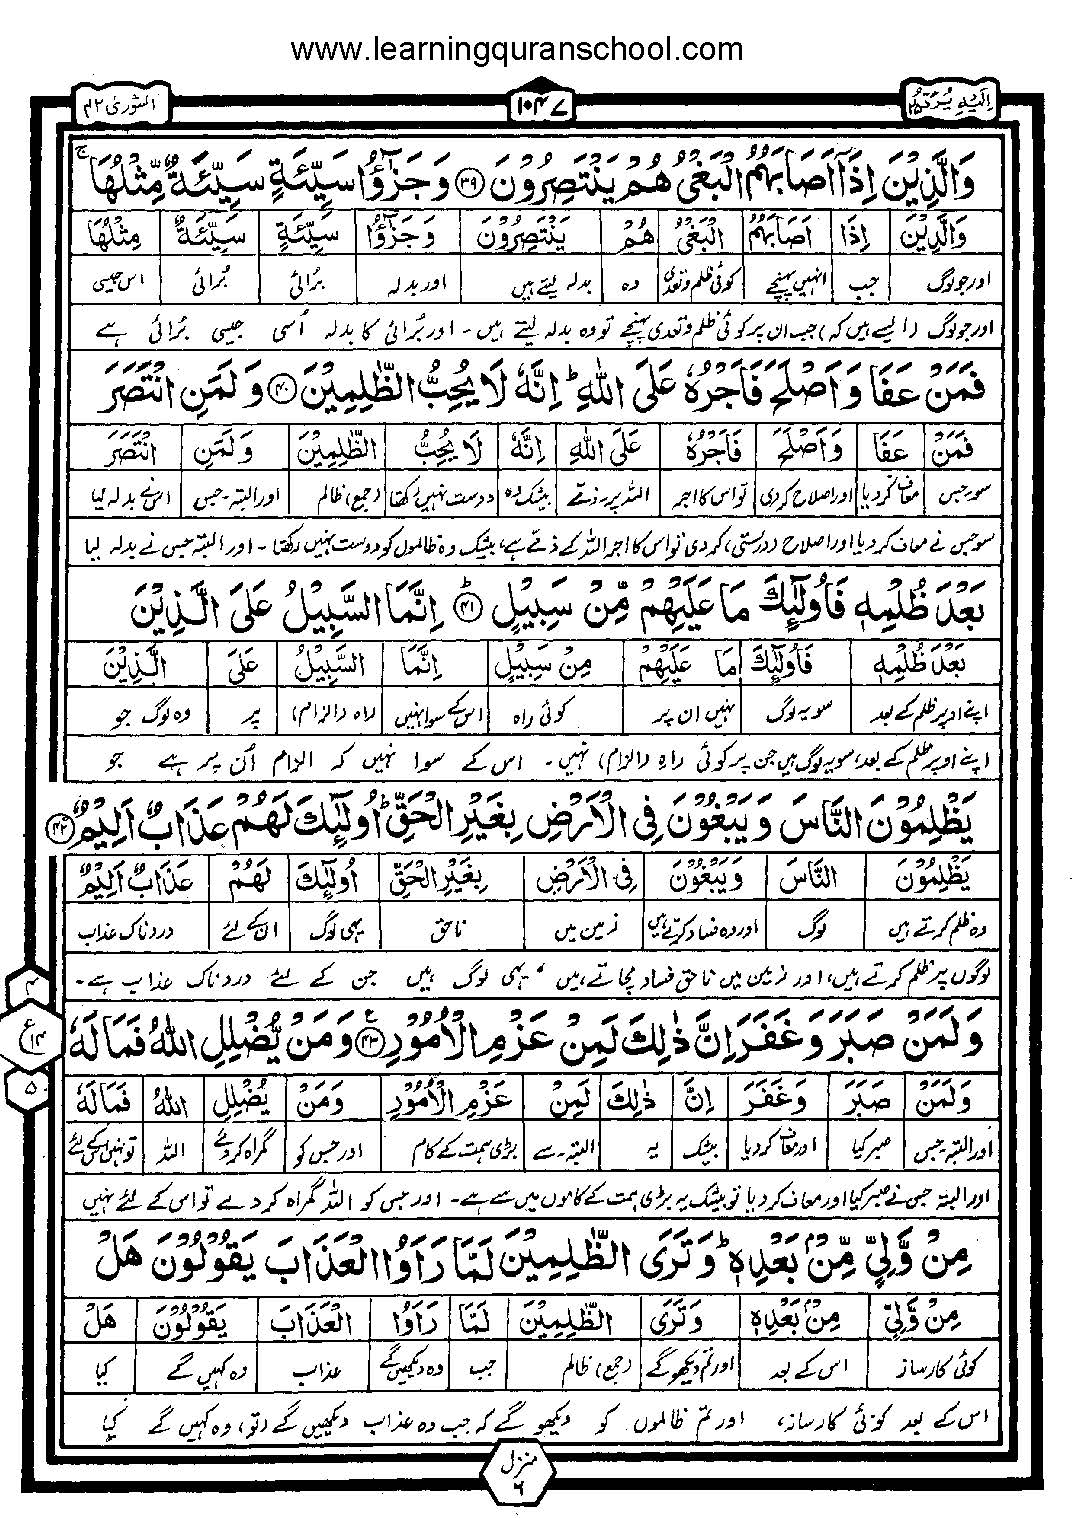 www.learningquranschool.com
اِلَيْهِ يُرَدُّ ۲۵
۱۰۴۷
الشورىٰ ۴۲
وَالَّذِيْنَ اِذَآ اَصَابَهُمُ الْبَغْىُ هُمْ يَنْتَصِرُوْنَ ﴿۳۹﴾ وَجَزٰٓؤُا سَيِّئَةٍ سَيِّئَةٌ مِّثْلُهَا ۚ
وَالَّذِيْنَ اِذَا اَصَابَهُمُ الْبَغْىُ هُمْ يَنْتَصِرُوْنَ وَجَزٰٓؤُا سَيِّئَةٍ سَيِّئَةٌ مِثْلُهَا
اور جو لوگ جب انہیں پہنچے کوئی ظلم و تعدی وہ بدلہ لیتے ہیں اور بدلہ بُرائی بُرائی اس جیسی
اور جو لوگ (ایسے ہیں کہ) جب ان پر کوئی ظلم و تعدی پہنچے تو وہ بدلہ لیتے ہیں۔ اور بُرائی کا بدلہ اُسی جیسی بُرائی ہے
فَمَنْ عَفَا وَاَصْلَحَ فَاَجْرُهٗ عَلَى اللّٰهِ ؕ اِنَّهٗ لَا يُحِبُّ الظّٰلِمِيْنَ ﴿۴۰﴾ وَلَمَنِ انْتَصَرَ
فَمَنْ عَفَا وَاَصْلَحَ فَاَجْرُهٗ عَلَى اللّٰهِ اِنَّهٗ لَا يُحِبُّ الظّٰلِمِيْنَ وَلَمَنِ انْتَصَرَ
سو جس معاف کر دیا اور اصلاح کردی تو اس کا اجر اللہ پر۔ذمے بیشک وہ دوست نہیں رکھتا (جمع) ظالم اور البتہ۔جس اس نے بدلہ لیا
سو جس نے معاف کر دیا اور اصلاح (درستی) کر دی تو اس کا اجر اللہ کے ذمے ہے، بیشک وہ ظالموں کو دوست نہیں رکھتا۔ اور البتہ جس نے بدلہ لیا
بَعْدَ ظُلْمِهٖ فَاُولٰٓئِكَ مَا عَلَيْهِمْ مِّنْ سَبِيْلٍ ﴿۴۱﴾ؕ اِنَّمَا السَّبِيْلُ عَلَى الَّذِيْنَ
بَعْدَ ظُلْمِهٖ فَاُولٰٓئِكَ مَا عَلَيْهِمْ مِنْ سَبِيْلٍ اِنَّمَا السَّبِيْلُ عَلَى الَّذِيْنَ
اپنے اوپر ظلم کے بعد سو یہ لوگ نہیں ان پر کوئی راہ اس کے سوا نہیں راہ (الزام) پر وہ لوگ جو
اپنے اوپر ظلم کے بعد، سو یہ لوگ ہیں جن پر کوئی راہ (الزام) نہیں۔ اس کے سوا نہیں کہ الزام اُن پر ہے جو
يَظْلِمُوْنَ النَّاسَ وَيَبْغُوْنَ فِى الْاَرْضِ بِغَيْرِ الْحَقِّ ؕ اُولٰٓئِكَ لَهُمْ عَذَابٌ اَلِيْمٌ ﴿۴۲﴾
يَظْلِمُوْنَ النَّاسَ وَيَبْغُوْنَ فِى الْاَرْضِ بِغَيْرِ الْحَقِّ اُولٰٓئِكَ لَهُمْ عَذَابٌ اَلِيْمٌ
وہ ظلم کرتے ہیں لوگ اور وہ فساد کرتے ہیں زمین میں ناحق یہی لوگ ان کے لئے دردناک عذاب
لوگوں پر ظلم کرتے ہیں، اور زمین میں ناحق فساد مچاتے ہیں، یہی لوگ ہیں جن کے لئے دردناک عذاب ہے۔
۴
ع
۱۴
۵
وَلَمَنْ صَبَرَ وَغَفَرَ اِنَّ ذٰلِكَ لَمِنْ عَزْمِ الْاُمُوْرِ ﴿۴۳﴾ وَمَنْ يُّضْلِلِ اللّٰهُ فَمَا لَهٗ
وَلَمَنْ صَبَرَ وَغَفَرَ اِنَّ ذٰلِكَ لَمِنْ عَزْمِ الْاُمُوْرِ وَمَنْ يُضْلِلِ اللّٰهُ فَمَا لَهٗ
اور البتہ۔جس صبر کیا اور معاف کر دیا بیشک یہ البتہ۔سے بڑی ہمت کے کام اور جس کو گمراہ کر دے اللہ تو نہیں اس کے لئے
اور البتہ جس نے صبر کیا اور معاف کر دیا تو بیشک یہ بڑی ہمت کے کاموں میں سے ہے۔ اور جس کو اللہ گمراہ کر دے تو اس کے لئے نہیں
مِنْ وَّلِىٍّ مِّنْۢ بَعْدِهٖ ؕ وَتَرَى الظّٰلِمِيْنَ لَمَّا رَاَوُا الْعَذَابَ يَقُوْلُوْنَ هَلْ
مِنْ وَّلِىٍّ مِنْۢ بَعْدِهٖ وَتَرَى الظّٰلِمِيْنَ لَمَّا رَاَوُا الْعَذَابَ يَقُوْلُوْنَ هَلْ
کوئی کارساز اس کے بعد اور تم دیکھو گے (جمع) ظالم جب وہ دیکھیں گے عذاب وہ کہیں گے کیا
اس کے بعد کوئی کارساز، اور تم ظالموں کو دیکھو گے کہ جب وہ عذاب دیکھیں گے (تو) وہ کہیں گے کیا
منزل ۶